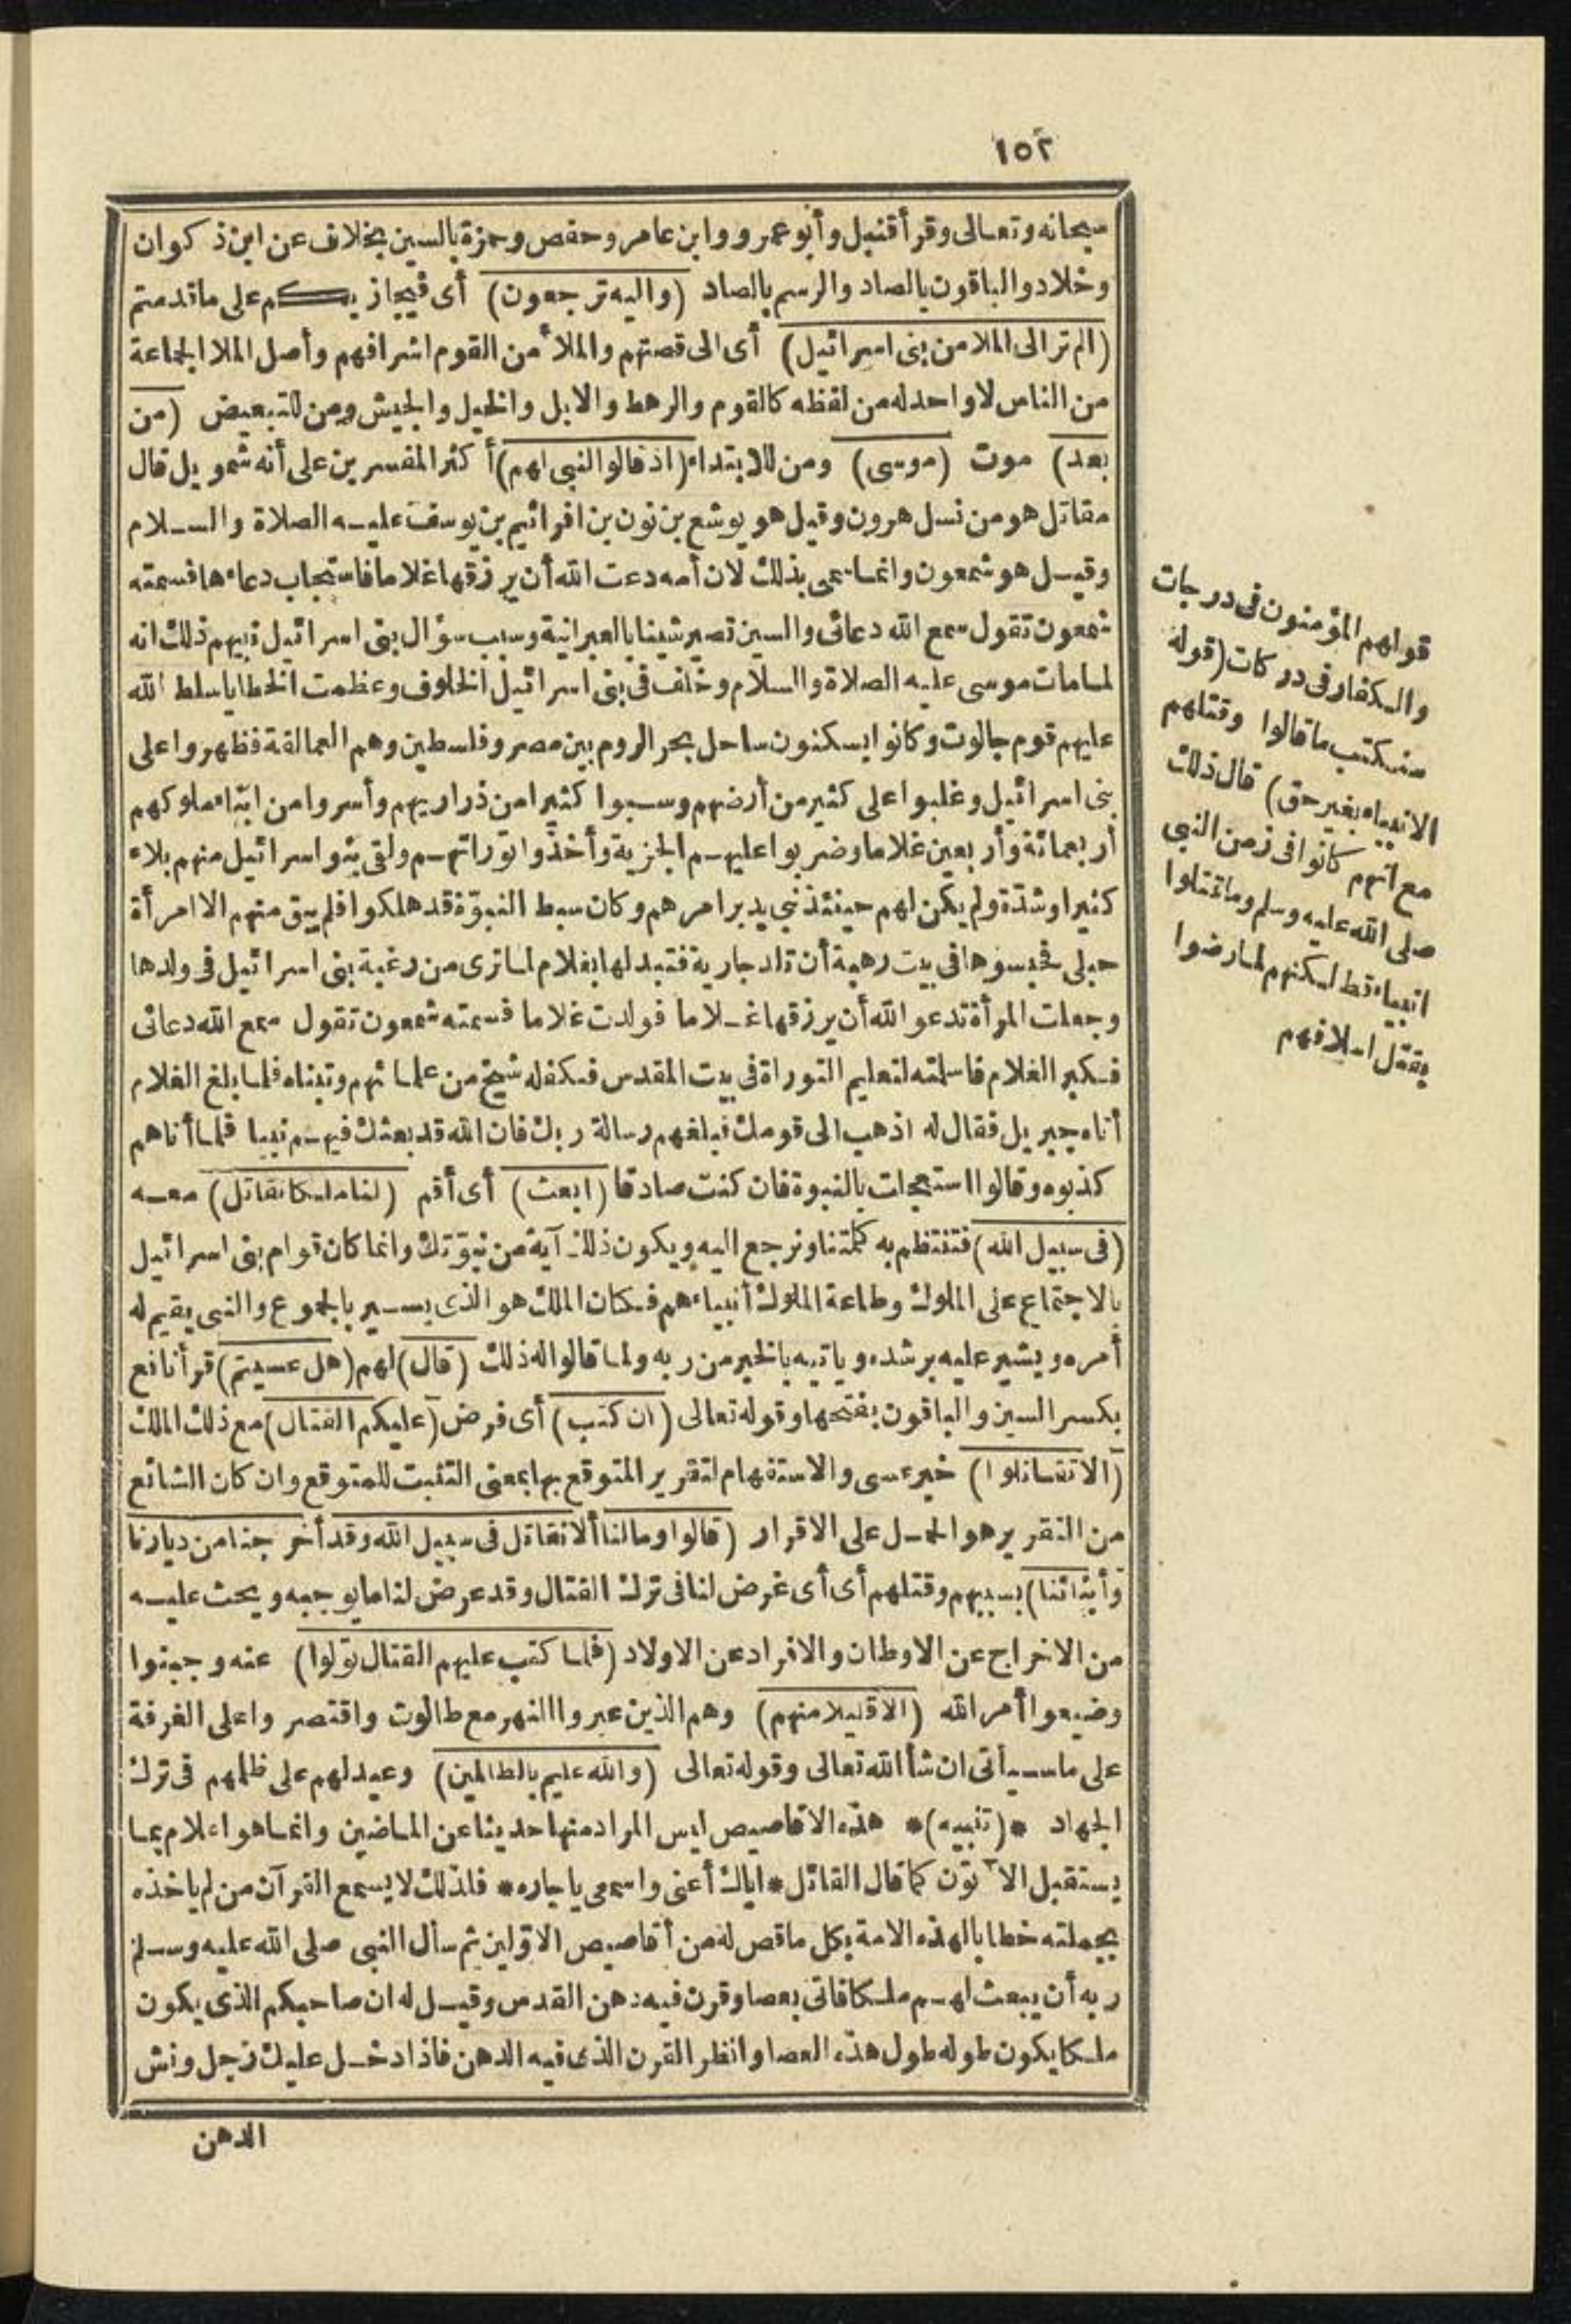 ١٥٢
سبحانه وتعالى وقرأ قنبل وأبو عمرو وابن عامر وحفص وحمزة بالسين بخلاف عن ابن ذكوان
وخلاد والباقون بالصاد والرسم بالصاد (واليه ترجعون) أى فيجازيكم على ما قدمتم
(الم تر الى الملا من بنى اسرائيل) أى الى قصتهم والملأ من القوم اشرافهم وأصل الملا الجماعة
من الناس لا واحد له من لفظه كالقوم والرهط والابل والخيل والجيش ومن للتبعيض (من
بعد) موت (موسى) ومن للابتداء (اذ قالوا لنبى لهم) أكثر المفسرين على أنه شمويل قال
مقاتل هو من نسل هرون وقيل هو يوشع بن نون بن افرائيم بن يوسف عليه الصلاة والسلام
وقيل هو شمعون وانما سمى بذلك لان أمه دعت الله أن يرزقها غلاما فاستجاب دعاءها فسمته
شمعون تقول سمع الله دعائى والسين تصير شينا بالعبرانية وسبب سؤال بنى اسرائيل نبيهم ذلك انه
لما مات موسى عليه الصلاة والسلام وخلف فى بنى اسرائيل الخلوف وعظمت الخطايا سلط الله
عليهم قوم جالوت وكانوا يسكنون ساحل بحر الروم بين مصر وفلسطين وهم العمالقة فظهروا على
بنى اسرائيل وغلبوا على كثير من أرضهم وسبوا كثيرا من ذراريهم وأسروا من ابناء ملوكهم
أربعمائة وأربعين غلاما وضربوا عليهم الجزية وأخذوا توراتهم ولقى بنو اسرائيل منهم بلاء
كثيرا وشدّة ولم يكن لهم حينئذ نبى يدبر امرهم وكان سبط النبوّة قد هلكوا فلم يبق منهم الا امرأة
حبلى فحبسوها فى بيت رهبة أن تلد جارية فتبدلها بغلام لما ترى من رغبة بنى اسرائيل فى ولدها
وجعلت المرأة تدعو الله أن يرزقها غلاما فولدت غلاما فسمته شمعون تقول سمع الله دعائى
فكبر الغلام فاسلمته لتعليم التوراة فى بيت المقدس فكفله شيخ من علمائهم وتبناه فلما بلغ الغلام
أتاه جبريل فقال له اذهب الى قومك فبلغهم رسالة ربك فان الله قد بعثك فيهم نبيا فلما أتاهم
كذبوه وقالوا استعجلت بالنبوة فان كنت صادقا (ابعث) أى أقم (لنا ملكا نقاتل) معه
(فى سبيل الله) فتنتظم به كلمتنا ونرجع اليه ويكون ذلك آية من نبوّتك وانما كان قوام بنى اسرائيل
بالاجتماع على الملوك وطاعة الملوك أنبياءهم فكان الملك هو الذى يسير بالجموع والنبى يقيم له
أمره ويشير عليه برشده وياتيه بالخبر من ربه ولما قالوا له ذلك (قال) لهم (هل عسيتم) قرأ نافع
بكسر السين والباقون بفتحها وقوله تعالى (ان كتب) أى فرض (عليكم القتال) مع ذلك الملك
(ألا تقاتلوا) خبر عسى والاستفهام لتقرير المتوقع بها بمعنى التثبت للمتوقع وان كان الشائع
من التقرير هو الحمل على الاقرار (قالوا وما لنا ألا نقاتل فى سبيل الله وقد أخرجنا من ديارنا
وأبنائنا) بسبيهم وقتلهم أى أى غرض لنا فى ترك القتال وقد عرض لنا ما يوجبه ويحث عليه
من الاخراج عن الاوطان والافراد عن الاولاد (فلما كتب عليهم القتال تولوا) عنه وجبنوا
وضيعوا أمر الله (الا قليلا منهم) وهم الذين عبروا النهر مع طالوت واقتصروا على الغرفة
على ما سيأتى ان شأ الله تعالى وقوله تعالى (والله عليم بالظالمين) وعيد لهم على ظلمهم فى ترك
الجهاد *(تنبيه)* هذه الاقاصيص ليس المراد منها حديثا عن الماضين وانما هو اعلام بما
يستقبل الآتون كما قال القائل * اياك أعنى واسمعى يا جاره * فلذلك لا يسمع القرآن من لم ياخذه
بجملته خطابا لهذه الامة بكل ما قص له من أقاصيص الاوّلين ثم سأل النبى صلى الله عليه وسلم
ربه أن يبعث لهم ملكا فاتى بعصا وقرن فيه دهن القدس وقيل له ان صاحبكم الذى يكون
ملكا يكون طوله طول هذه العصا وانظر القرن الذى فيه الدهن فاذا دخل عليك رجل ونش
الدهن
قولهم المؤمنون فى درجات
والكفار فى دركات (قوله
سنكتب ما قالوا وقتلهم
الانبياء بغير حق) قال ذلك
مع انهم كانوا فى زمن النبى
صلى الله عليه وسلم وما قتلوا
انبياء قط لكنهم لما رضوا
بقتل اسلافهم